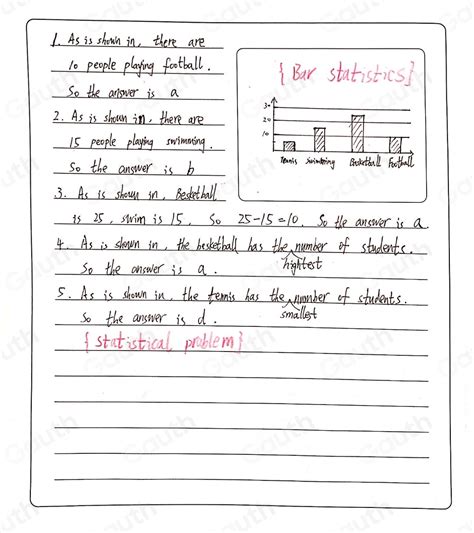 1. As is shown in, there are
10 people playing football.
So the answer is a
2. As is shown in, there are
15 people playing swimming.
So the answer is b
{ Bar statistics}
30
20
10
Tennis Swimming Basketball Football
3. As is shown in, Besketball
is 25, swim is 15, So 25-15=10. So the answer is a
4. As is shown in, the besketball has the number of students.
hightest
So the answer is a.
5. As is shown in, the tennis has the number of students.
smallest
So the answer is d.
{ statistical problem}
Gauth